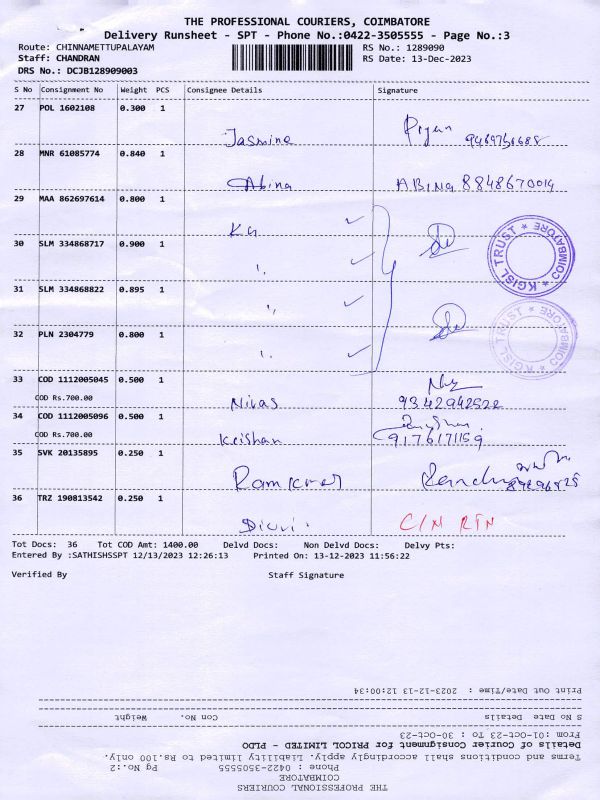 THE PROFESSIONAL COURIERS, COIMBATORE
Delivery Runsheet - SPT - Phone No.:0422-3505555 - Page No.:3
Route: CHINNAMETTUPALAYAM RS No.: 1289090
Staff: CHANDRAN RS Date: 13-Dec-2023
DRS No.: DCJB128909003
S No Consignment No Weight PCS Consignee Details Signature
27 POL 1602108 0.300 1
Jasmine
28 MNR 61085774 0.840 1
Abina ABINA 8848670014
29 MAA 862697614 0.800 1
KG
30 SLM 334868717 0.900 1
31 SLM 334868822 0.895 1
32 PLN 2304779 0.800 1
KGISL TRUST * COIMBATORE *
KGISL TRUST * COIMBATORE *
33 COD 1112005045 0.500 1
COD Rs.700.00
Nivas 9342942522
34 COD 1112005096 0.500 1
COD Rs.700.00
Keishan 9176171159
35 SVK 20135895 0.250 1
36 TRZ 190813542 0.250 1
C/N RTN
Tot Docs: 36 Tot COD Amt: 1400.00 Delvd Docs: Non Delvd Docs: Delvy Pts:
Entered By :SATHISHSSPT 12/13/2023 12:26:13 Printed On: 13-12-2023 11:56:22
Verified By Staff Signature
Print Out Date/Time : 2023-12-13 12:00:34
S No Date Details Con No. Weight
From :01-Oct-23 To : 30-Oct-23
Details of Courier Consignment for PRICOL LIMITED - PLDO
Terms and conditions shall accordingly apply. Liability limited to Rs.100 only.
Phone : 0422-3505555 Pg No.:2
COIMBATORE
THE PROFESSIONAL COURIERS